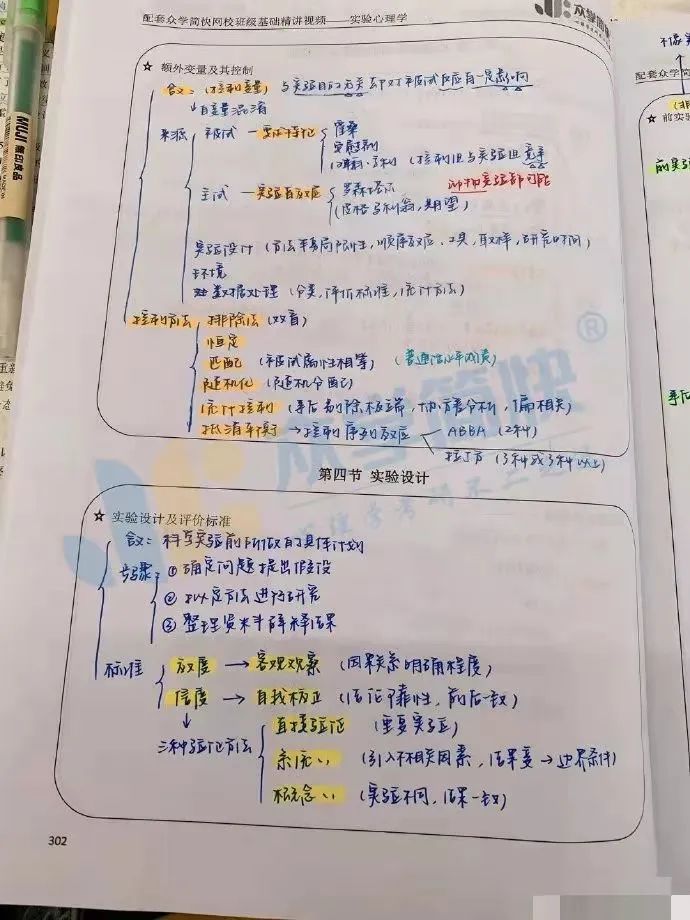 配套众学简快网校班级基础精讲视频——实验心理学
众学简快
☆ 额外变量及其控制
含义:(控制变量) 与实验目的无关却对被试反应有一定影响
→自变量混淆
来源 被试 — 要求特征 霍桑
安慰剂
(控制组与实验组竞争
主试 — 实验者效应 罗森塔尔
(皮格马利翁,期望)
动物实验都可能
实验设计 (方法本身局限性,顺序效应,工具,取样,研究时间)
环境
数据处理 (分类,评价标准,统计方法)
控制方法 排除法 (双盲)
恒定
匹配 (被试属性相等)
随机化 (随机分配)
统计控制 (事后剔除极端,协方差分析,偏相关)
抵消平衡 →控制序列效应 ABBA (2种)
拉丁方 (3种或3种以上)
第四节 实验设计
☆ 实验设计及评价标准
含义: 科学实验前所做的具体计划
步骤: ①确定问题提出假设
②拟定方法进行研究
③整理资料解释结果
标准 效度 → 客观观察 (因果关系明确程度)
信度 → 自我校正 (结论可靠性,前后一致)
三种验证方法 直接验证 (重复实验)
系统〃 (引入不相关因素,结果变→边界条件)
概念〃 (实验不同,结果一致)
302
配套众学简
☆ 前实验
MUJI
無印良品